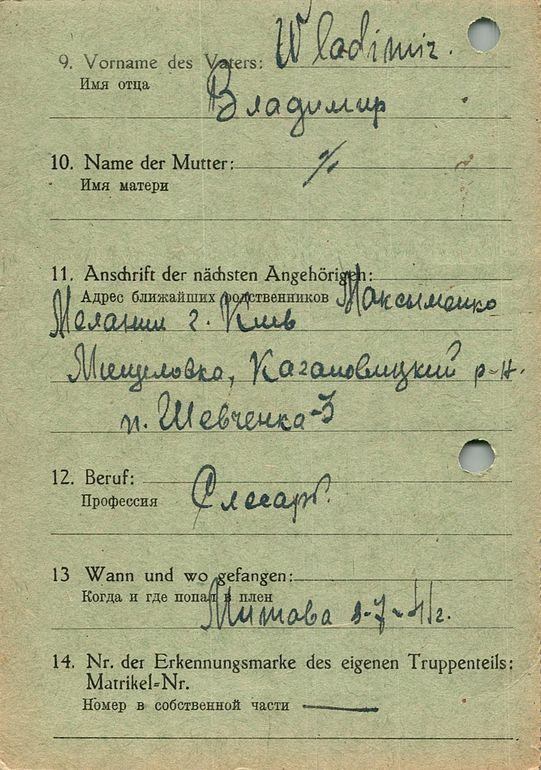 9. Vorname des Vaters: Wladimir.
Имя отца
Владимир
10. Name der Mutter: %
Имя матери
11. Anschrift der nächsten Angehörigen:
Адрес ближайших родственников Максименко
Мелания г. Киев
Мишеловка, Кагановицкий р-н.
п. Шевченка-3
12. Beruf:
Профессия Слесарь.
13 Wann und wo gefangen:
Когда и где попал в плен
Митава 9-7-41г.
14. Nr. der Erkennungsmarke des eigenen Truppenteils:
Matrikel-Nr.
Номер в собственной части —